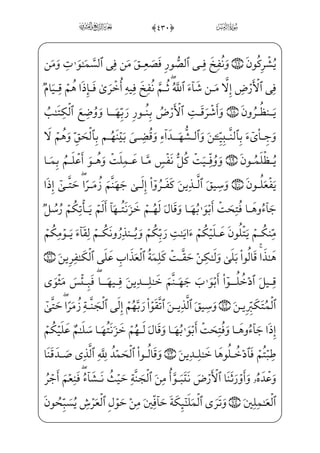 سُورَةُ الزُّمَرِ ﴿٤٣٠﴾
يُشْرِكُونَ ۝٦٧ وَنُفِخَ فِى ٱلصُّورِ فَصَعِقَ مَن فِى ٱلسَّمَٰوَٰتِ وَمَن
فِى ٱلْأَرْضِ إِلَّا مَن شَآءَ ٱللَّهُ ۖ ثُمَّ نُفِخَ فِيهِ أُخْرَىٰ فَإِذَا هُمْ قِيَامٌ
يَنظُرُونَ ۝٦٨ وَأَشْرَقَتِ ٱلْأَرْضُ بِنُورِ رَبِّهَا وَوُضِعَ ٱلْكِتَٰبُ
وَجِا۟ىٓءَ بِٱلنَّبِيِّۦنَ وَٱلشُّهَدَآءِ وَقُضِىَ بَيْنَهُم بِٱلْحَقِّ وَهُمْ لَا
يُظْلَمُونَ ۝٦٩ وَوُفِّيَتْ كُلُّ نَفْسٍ مَّا عَمِلَتْ وَهُوَ أَعْلَمُ بِمَا
يَفْعَلُونَ ۝٧٠ وَسِيقَ ٱلَّذِينَ كَفَرُوٓا۟ إِلَىٰ جَهَنَّمَ زُمَرًا ۖ حَتَّىٰٓ إِذَا
جَآءُوهَا فُتِحَتْ أَبْوَٰبُهَا وَقَالَ لَهُمْ خَزَنَتُهَآ أَلَمْ يَأْتِكُمْ رُسُلٌ
مِّنكُمْ يَتْلُونَ عَلَيْكُمْ ءَايَٰتِ رَبِّكُمْ وَيُنذِرُونَكُمْ لِقَآءَ يَوْمِكُمْ
هَٰذَا ۚ قَالُوا۟ بَلَىٰ وَلَٰكِنْ حَقَّتْ كَلِمَةُ ٱلْعَذَابِ عَلَى ٱلْكَٰفِرِينَ ۝٧١
قِيلَ ٱدْخُلُوٓا۟ أَبْوَٰبَ جَهَنَّمَ خَٰلِدِينَ فِيهَا ۖ فَبِئْسَ مَثْوَى
ٱلْمُتَكَبِّرِينَ ۝٧٢ وَسِيقَ ٱلَّذِينَ ٱتَّقَوْا۟ رَبَّهُمْ إِلَى ٱلْجَنَّةِ زُمَرًا ۖ حَتَّىٰٓ
إِذَا جَآءُوهَا وَفُتِحَتْ أَبْوَٰبُهَا وَقَالَ لَهُمْ خَزَنَتُهَا سَلَٰمٌ عَلَيْكُمْ
طِبْتُمْ فَٱدْخُلُوهَا خَٰلِدِينَ ۝٧٣ وَقَالُوا۟ ٱلْحَمْدُ لِلَّهِ ٱلَّذِى صَدَقَنَا
وَعْدَهُۥ وَأَوْرَثَنَا ٱلْأَرْضَ نَتَبَوَّأُ مِنَ ٱلْجَنَّةِ حَيْثُ نَشَآءُ ۖ فَنِعْمَ أَجْرُ
ٱلْعَٰمِلِينَ ۝٧٤ وَتَرَى ٱلْمَلَٰٓئِكَةَ حَآفِّينَ مِنْ حَوْلِ ٱلْعَرْشِ يُسَبِّحُونَ